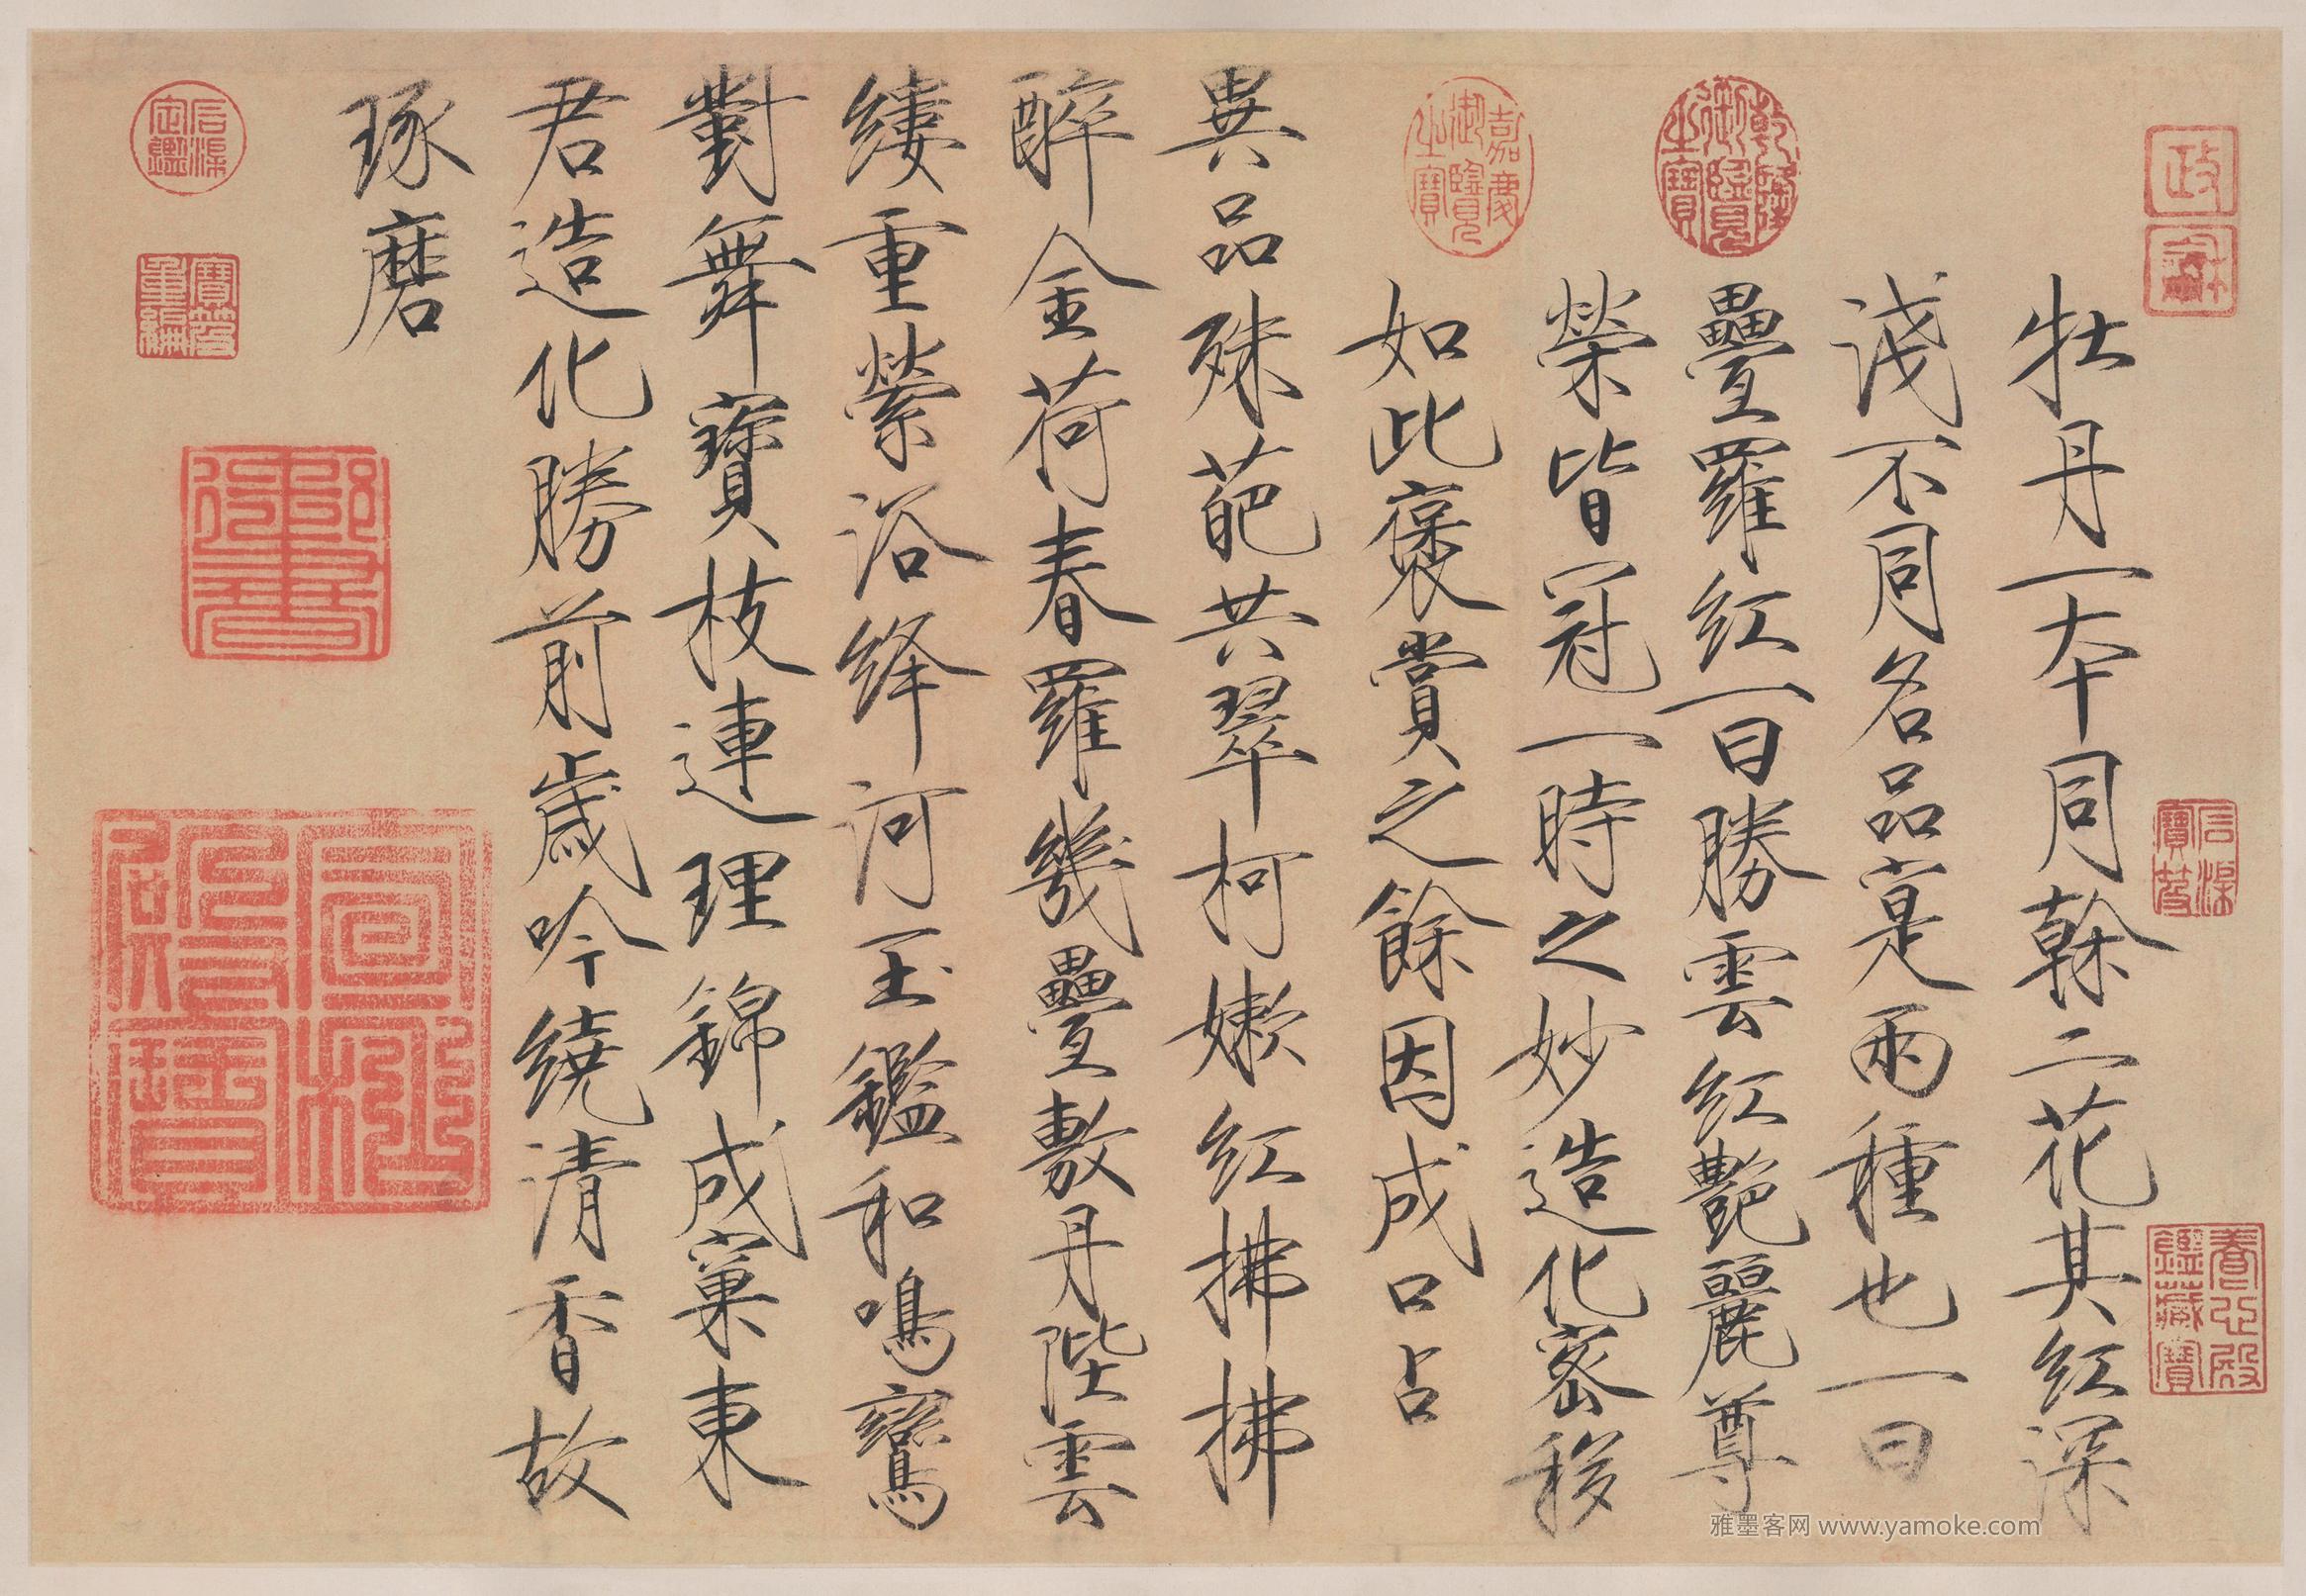 政龢
石渠寶笈
養心殿鑑藏寶
牡丹一本同榦二花其紅深
淺不同名品寔兩種也一曰
乾隆御覽之寶
疊羅紅一曰勝雲紅艷麗尊
榮皆冠一時之妙造化密移
嘉慶御覽之寶
如此褒賞之餘因成口占
異品殊葩共翠柯嫩紅拂拂
醉金荷春羅幾疊敷丹陛雲
縷重縈浴絳河玉鑑和鳴鸞
對舞寶枝連理錦成窠東
君造化勝前歲吟繞清香故
琢磨
石渠定鑑
寶笈重編
雅墨客网 www.yamoke.com